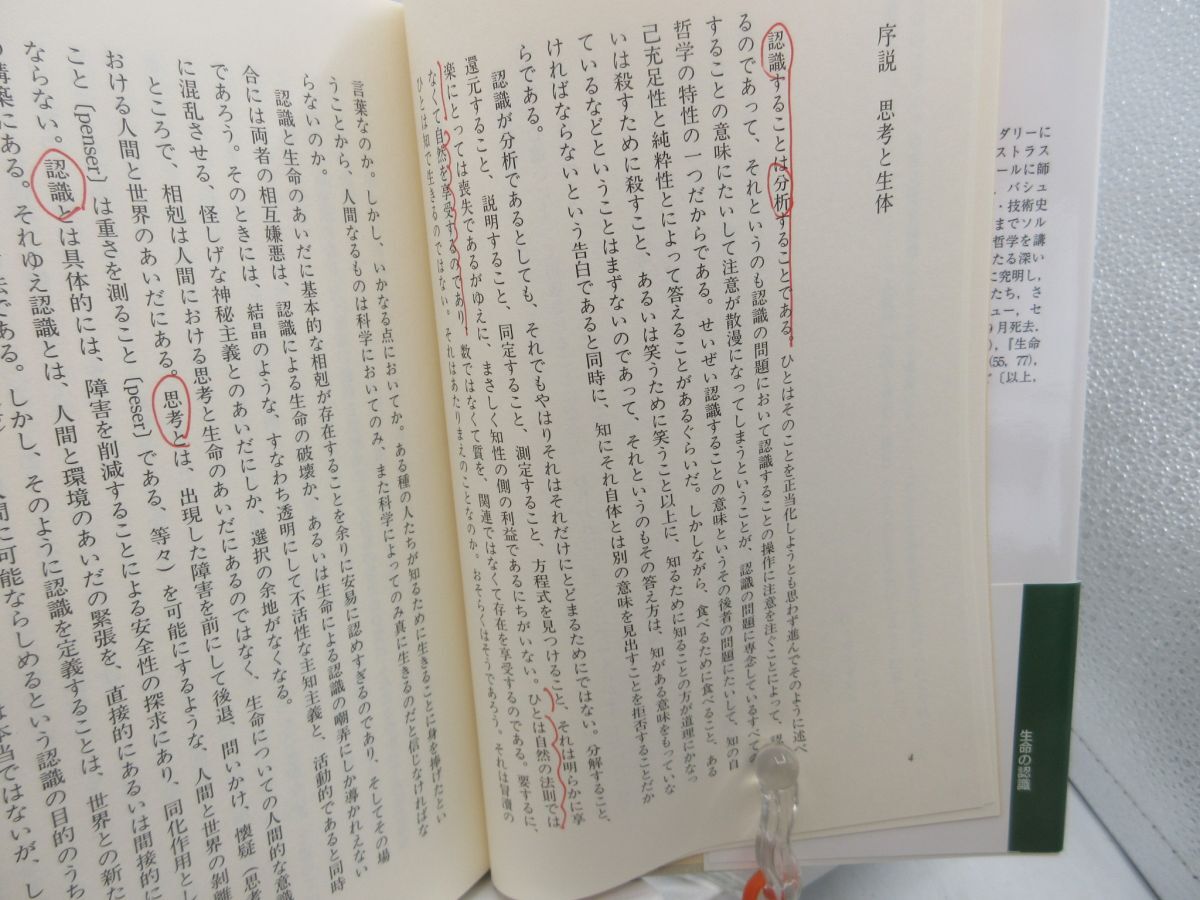 序説　思考と生体
認識することは分析することである。ひとはそのことを正当化しようとも思わず進んでそのように述べ
るのであって、それというのも認識の問題において認識することの操作に注意を注ぐことによって、認
することの意味にたいして注意が散漫になってしまうということが、認識の問題に専念しているすべての
哲学の特性の一つだからである。せいぜい認識することの意味というその後者の問題にたいして、知の自
己充足性と純粋性とによって答えることがあるぐらいだ。しかしながら、食べるために食べること、ある
いは殺すために殺すこと、あるいは笑うために笑うこと以上に、知るために知ることの方が道理にかなっ
ているなどということはまずないのであって、それというのもその答え方は、知がある意味をもっていな
ければならないという告白であると同時に、知にそれ自体とは別の意味を見出すことを拒否することだか
らである。
認識が分析であるとしても、それでもやはりそれはそれだけにとどまるためにではない。分解すること、
還元すること、説明すること、同定すること、測定すること、方程式を見つけること、それは明らかに享
楽にとっては喪失であるがゆえに、まさしく知性の側の利益であるにちがいない。ひとは自然の法則では
なくて自然を享受するのであり、数ではなくて質を、関連ではなくて存在を享受するのである。要するに、
ひとは知で生きるのではない。それはあたりまえのことなのか。おそらくはそうであろう。それは冒瀆の
4
言葉なのか。しかし、いかなる点においてか。ある種の人たちが知るために生きることに身を捧げたとい
うことから、人間なるものは科学においてのみ、また科学によってのみ真に生きるのだと信じなければな
らないのか。
認識と生命のあいだに基本的な相剋が存在することを余りに安易に認めすぎるのであり、そしてその場
合には両者の相互嫌悪は、認識による生命の破壊か、あるいは生命による認識の嘲弄にしか導かれえない
であろう。そのときには、結晶のような、すなわち透明にして不活性な主知主義と、活動的であると同時
に混乱させる、怪しげな神秘主義とのあいだにしか、選択の余地がなくなる。
ところで、相剋は人間における思考と生命のあいだにあるのではなく、生命についての人間的な意識
おける人間と世界のあいだにある。思考とは、出現した障害を前にして後退、問いかけ、懐疑（思考
こと〔penser〕は重さを測ること〔peser〕である、等々）を可能にするような、人間と世界の剝離
ならない。認識とは具体的には、障害を削減することによる安全性の探求にあり、同化作用とし
構築にある。それゆえ認識とは、人間と環境のあいだの緊張を、直接的にあるいは間接的に
法である。しかし、そのように認識を定義することは、世界との新た
間に可能ならしめるという認識の目的のうち
は本当ではないが、し
ダリーに
ストラス
ールに師
，バシュ
・技術史
までソル
哲学を講
たる深い
に究明し，
たち，さ
ュー，セ
9月死去．
，『生命
(55，77)，
〔以上，
生命の認識